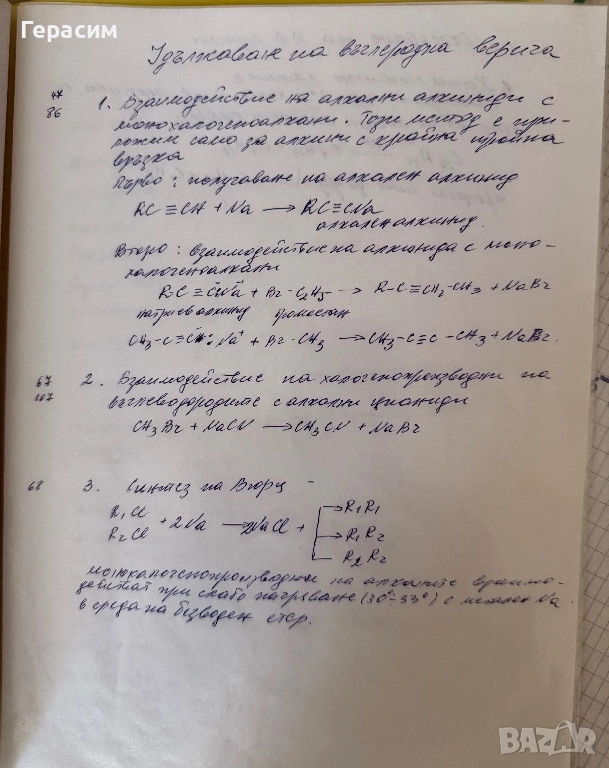 Герасим
Удължаван на въглеродна верига
47
86
1. Взаимодействие на алкални алкиниди с
монохалогеноалкани. Този метод е при-
ложим само за алкини с крайна тройна
връзка
Първо: получаване на алкален алкинид
RC≡CH + Na → RC≡CNa
алкален алкинид
Второ: взаимодействие на алкинида с моно-
халогеноалкани
R-C≡C⁻Na⁺ + Br-C₂H₅ → R-C≡CH₂-CH₃ + NaBr
натриев алкинид бромоетан
CH₃-C≡C⁻:Na⁺ + Br-CH₃ → CH₃-C≡C-CH₃ + NaBr.
67
107
2. Взаимодействие на халогенопроизводни на
въглеводородите с алкални цианиди
CH₃Br + NaCN → CH₃CN + NaBr
68
3. Синтез на Вюрц -
R₁Cl → R₁R₁
+ 2Na → 2NaCl + → R₁R₂
R₂Cl R₂R₂
монохалогенопроизводни на алканите взаимо-
действат при слабо нагряване (30°-33°) с метален Na
в среда на безводен етер.
BAZAR